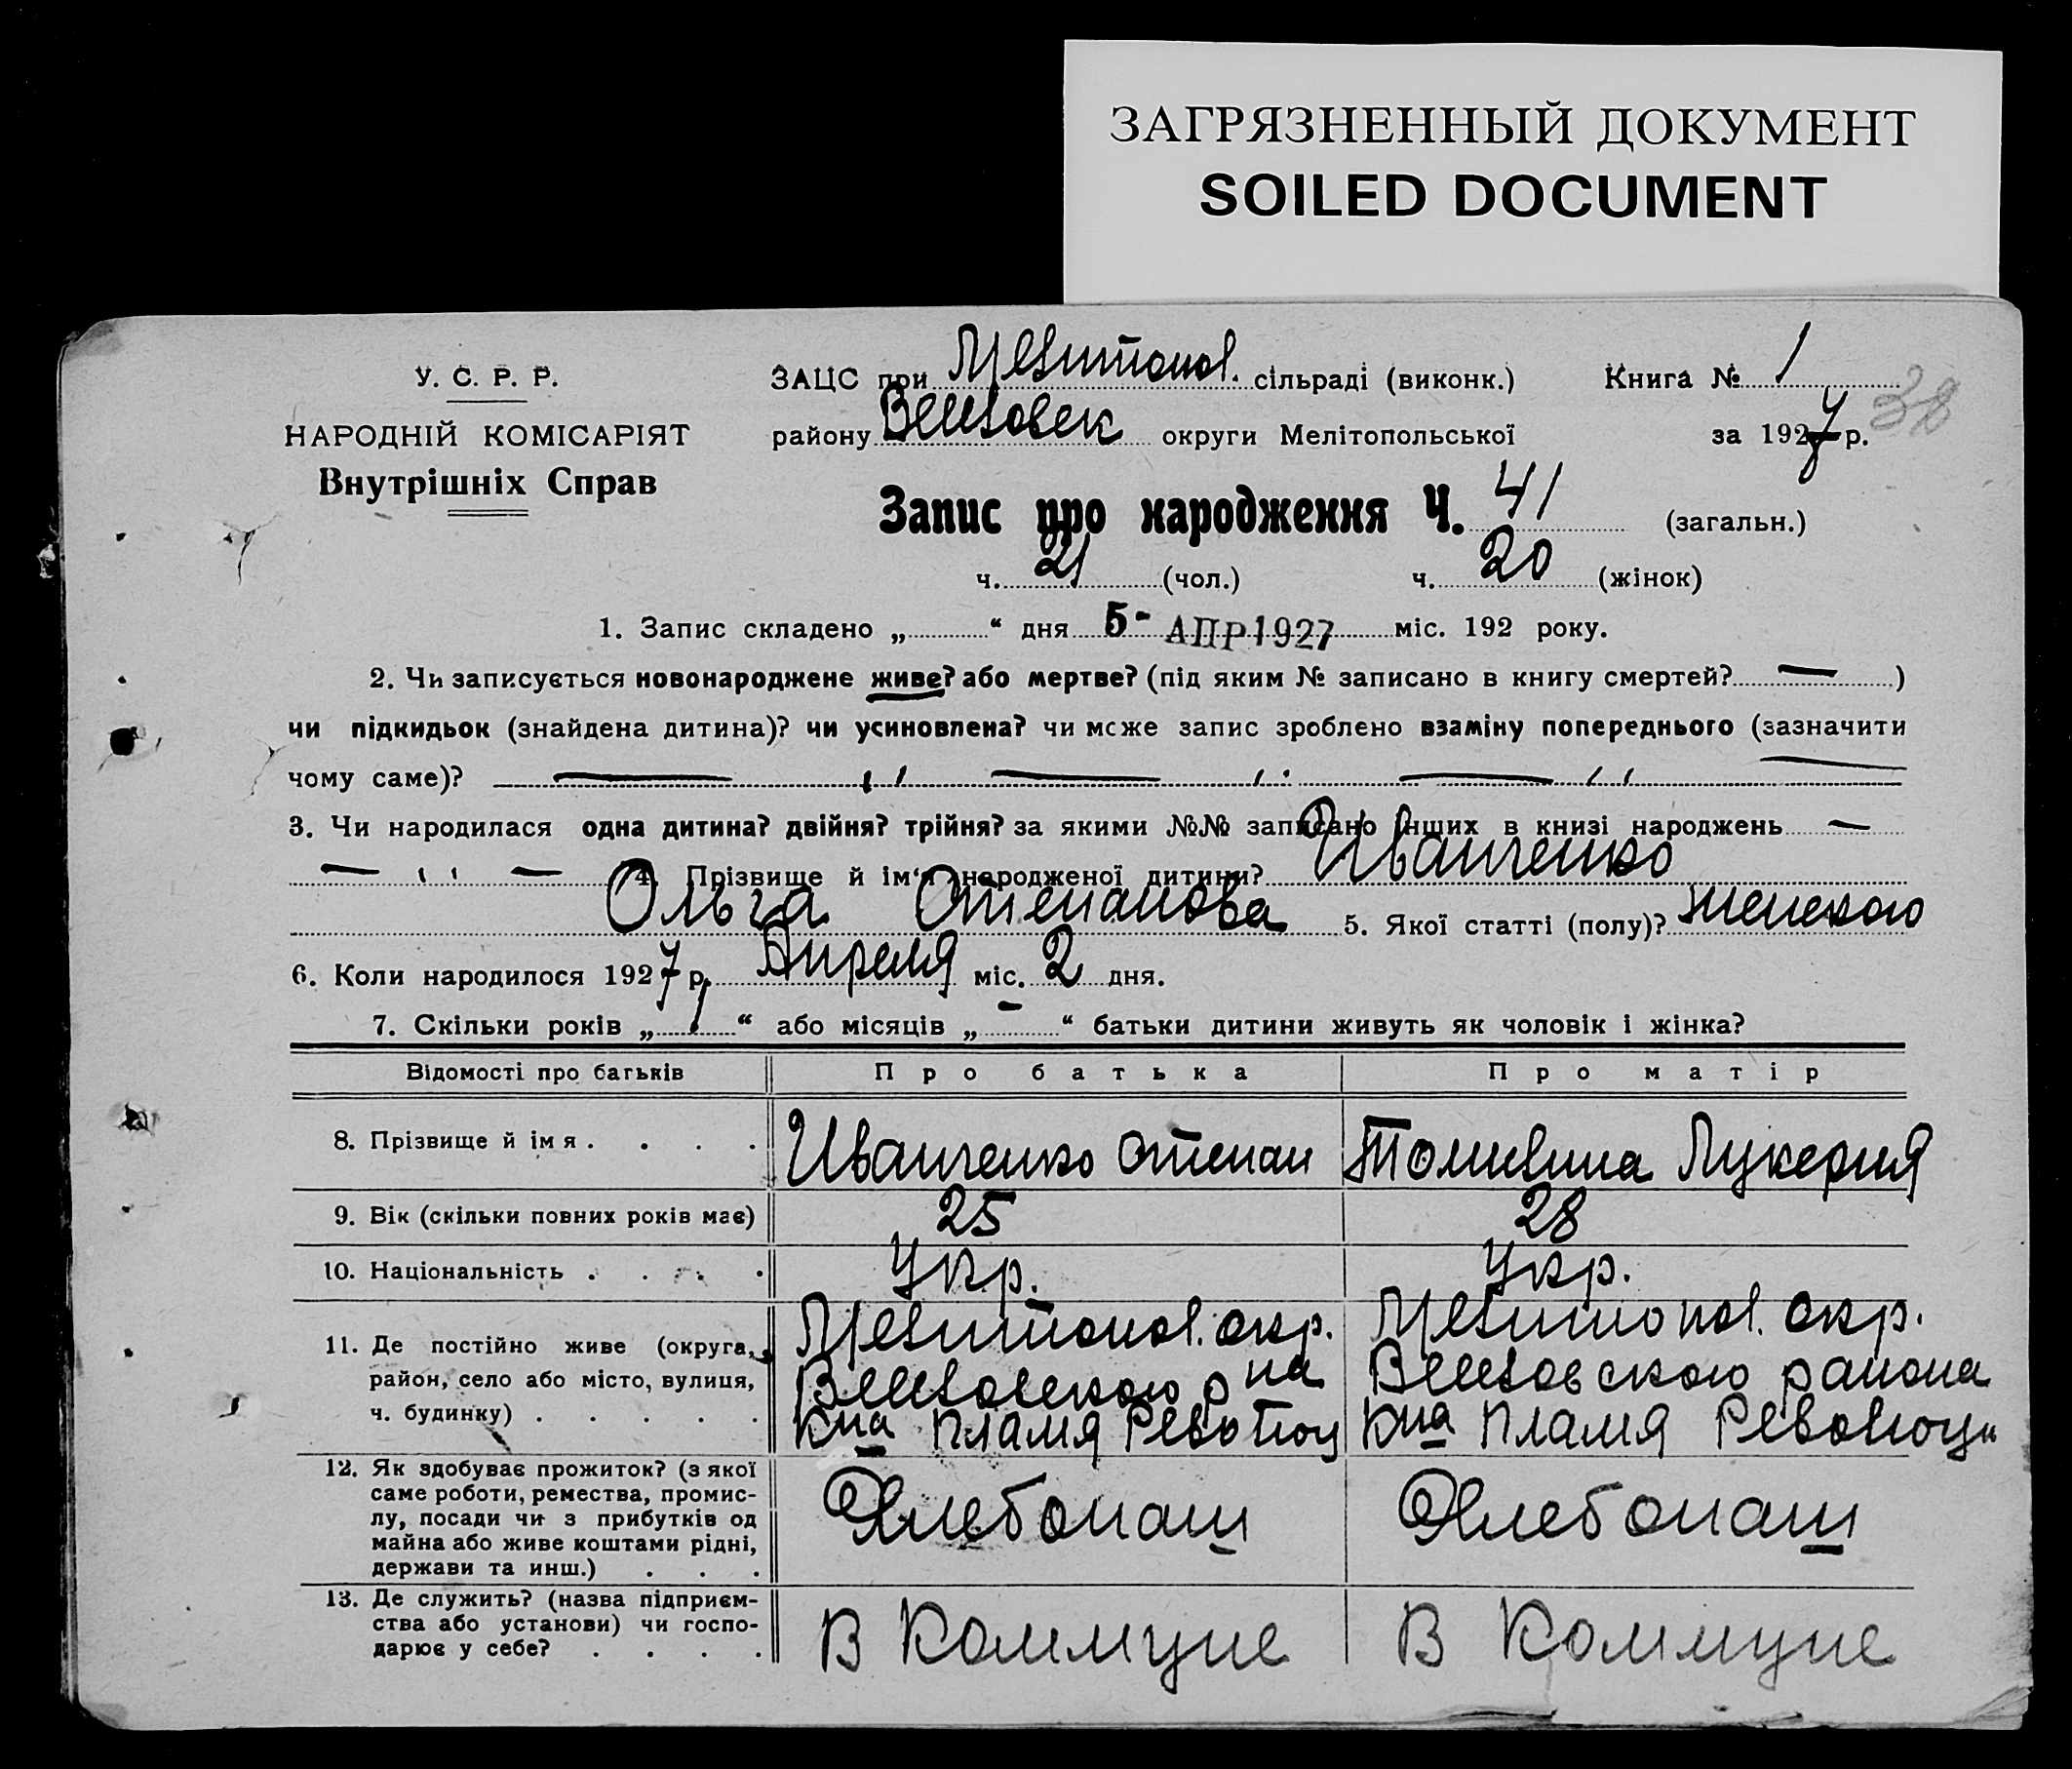 ЗАГРЯЗНЕННЫЙ ДОКУМЕНТ
SOILED DOCUMENT
У. С. Р. Р.
НАРОДНІЙ КОМІСАРІЯТ
Внутрішніх Справ
ЗАЦС при Мелитопол. сільраді (виконк.) Книга № 1
району Веселовск округи Мелітопольської за 1927 р.
38
Запис про народження Ч. 41 (загальн.)
ч. 21 (чол.) ч. 20 (жінок)
1. Запис складено „ “ дня 5- АПР 1927 міс. 192 року.
2. Чи записується новонароджене живе? або мертве? (під яким № записано в книгу смертей? — )
чи підкидьок (знайдена дитина)? чи усиновлена? чи може запис зроблено взаміну попереднього (зазначити
чому саме)? — ,, — ,, — ,,
3. Чи народилася одна дитина? двійня? трійня? за якими №№ записано інших в книзі народжень —
— ,, — 4. Прізвище й ім'я народженої дитини? Иванченко
Ольга Степанова 5. Якої статті (полу)? женского
6. Коли народилося 1927 р. Апреля міс. 2 дня.
7. Скільки років „ 1 “ або місяців „ - “ батьки дитини живуть як чоловік і жінка?
Відомості про батьків Про батька Про матір
8. Прізвище й імя . . . . Иванченко Степан Лукерия
9. Вік (скільки повних років має) 25 28
10. Національність . . . . Укр. Укр.
11. Де постійно живе (округа, Мелитопол. окр. Мелитопол. окр.
район, село або місто, вулиця, Веселовского рна Веселовского района
ч. будинку) . . . . . Кна Пламя Революц Кна Пламя Революци
12. Як здобуває прожиток? (з якої
саме роботи, ремества, промис-
лу, посади чи з прибутків од
майна або живе коштами рідні,
держави та инш.) . . . Хлебопаш Хлебопаш
13. Де служить? (назва підприєм-
ства або установи) чи госпо-
дарює у себе? . . . . В Коммуне В Коммуне